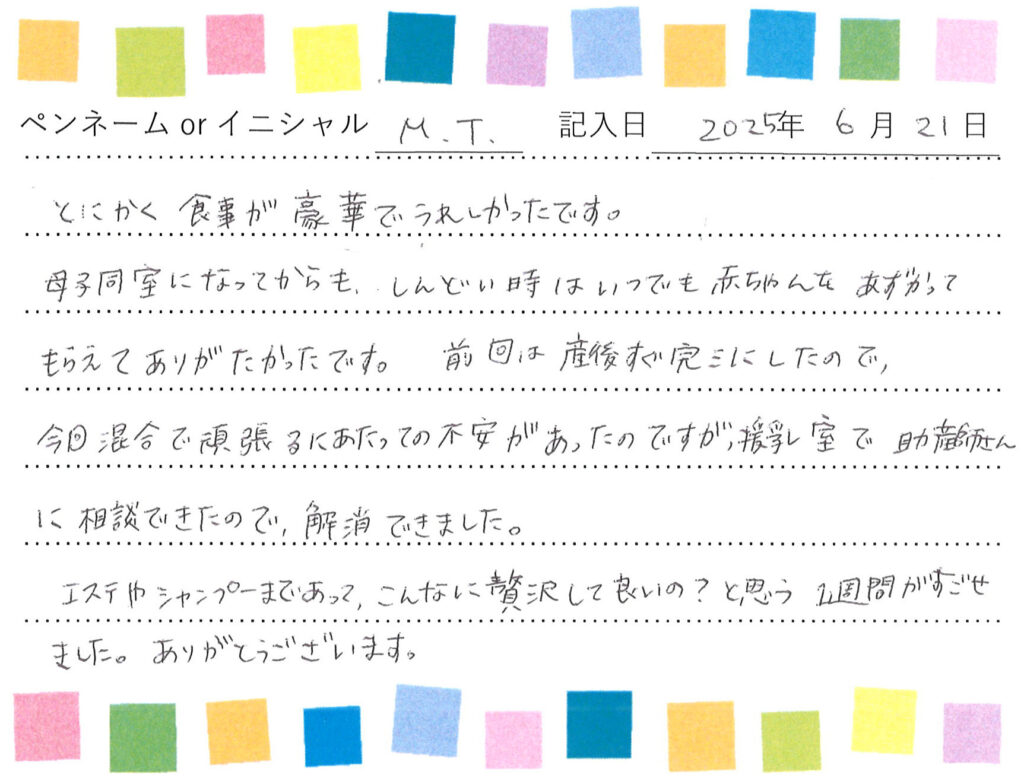 ペンネーム or イニシャル M.T. 記入日 2025年 6月21日
とにかく食事が豪華でうれしかったです。
母子同室になってからも、しんどい時はいつでも赤ちゃんを あずかって
もらえてありがたかったです。 前回は産後すぐ完ミにしたので、
今回混合で頑張るにあたっての不安があったのですが、授乳室で助産師さん
に相談できたので、解消できました。
エステやシャンプーまであって、こんなに贅沢して良いの?と思う 1週間がすごせ
ました。ありがとうございます。